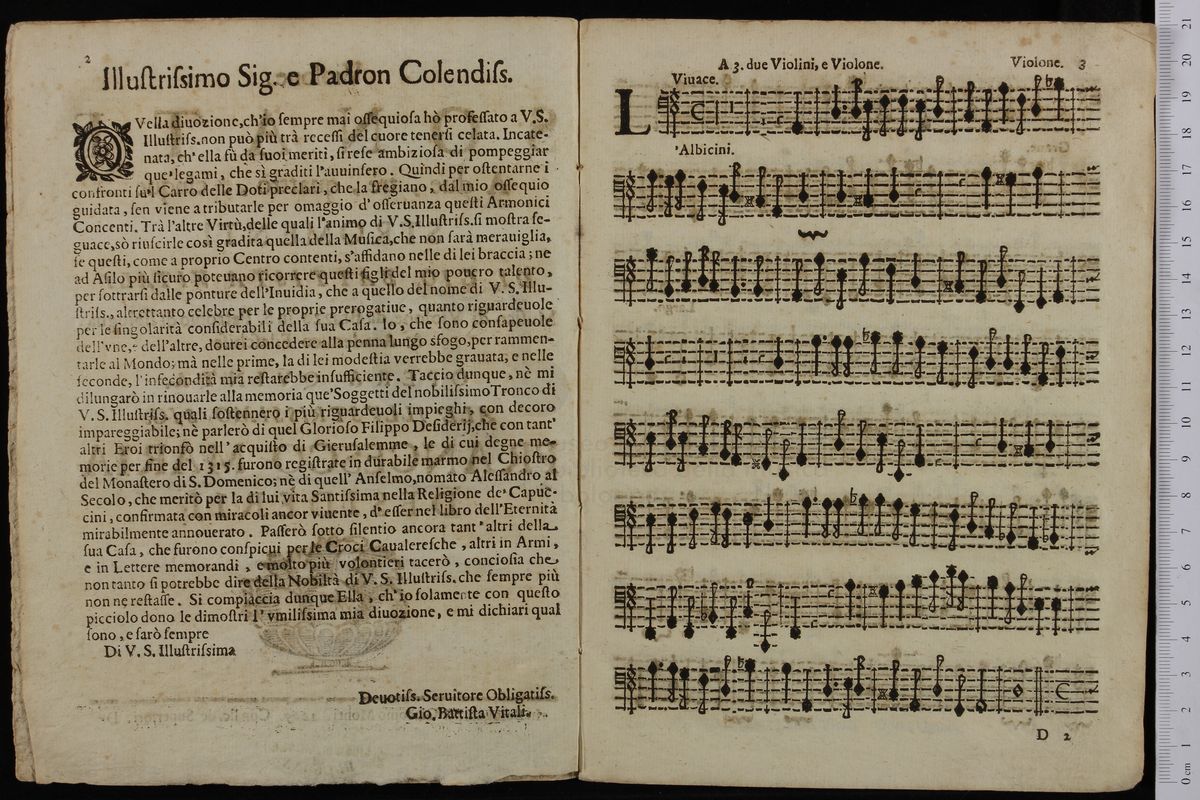 2
Illustrissimo Sig. e Padron Colendiss.
QVella diuozione,ch'io sempre mai ossequiosa hò professato a V.S.
Illustriss.non può più trà recessi del cuore tenersi celata. Incate-
nata, ch' ella fù da suoi meriti, si rese ambiziosa di pompeggiar
que' legami, che sì graditi l'auuinsero. Quindi per ostentarne i
confronti su'l Carro delle Doti preclari, che la fregiano, dal mio ossequio
guidata, sen viene a tributarle per omaggio d'osseruanza questi Armonici
Concenti. Trà l'altre Virtù,delle quali l'animo di V.S.Illustriss.si mostra se-
guace,sò riuscirle così gradita quella della Musica,che non sarà merauiglia,
se questi, come a proprio Centro contenti, s'affidano nelle di lei braccia; ne
ad Asilo più sicuro poteuano ricorrere questi figli del mio pouero talento,
per sottrarsi dalle ponture dell'Inuidia, che a quello del nome di V. S. Illu-
striss., altrettanto celebre per le proprie prerogatiue, quanto riguardeuole
per le singolarità considerabili della sua Casa. Io, che sono consapeuole
dell'vne,e dell'altre, dourei concedere alla penna lungo sfogo,per rammen-
tarle al Mondo; mà nelle prime, la di lei modestia verrebbe grauata; e nelle
seconde, l'infecondità mia restarebbe insufficiente. Taccio dunque, nè mi
dilungarò in rinouarle alla memoria que'Soggetti del nobilissimo Tronco di
V. S. Illustriss. quali sostennero i più riguardeuoli impieghi, con decoro
impareggiabile; nè parlerò di quel Glorioso Filippo Desiderij,che con tant'
altri Eroi trionfò nell' acquisto di Gierusalemme, le di cui degne me-
morie per fine del 1315. furono registrate in durabile marmo nel Chiostro
del Monastero di S. Domenico; nè di quell' Anselmo,nomato Alessandro al
Secolo, che meritò per la di lui vita Santissima nella Religione de' Capuc-
cini, confirmata con miracoli ancor viuente, d'esser nel libro dell'Eternità
mirabilmente annouerato. Passerò sotto silentio ancora tant' altri della
sua Casa, che furono conspicui per le Croci Caualeresche, altri in Armi,
e in Lettere memorandi, e molto più volontieri tacerò, conciosia che
non tanto si potrebbe dire della Nobiltà di V. S. Illustriss. che sempre più
non ne restasse. Si compiaccia dunque Ella, ch'io solamente con questo
picciolo dono le dimostri l' vmilissima mia diuozione, e mi dichiari qual
sono, e sarò sempre
Di V. S. Illustrissima
Deuotiss. Seruitore Obligatiss.
Gio. Battista Vitali.
A 3. due Violini, e Violone.
Violone. 3
Viuace.
L'Albicini.
D 2